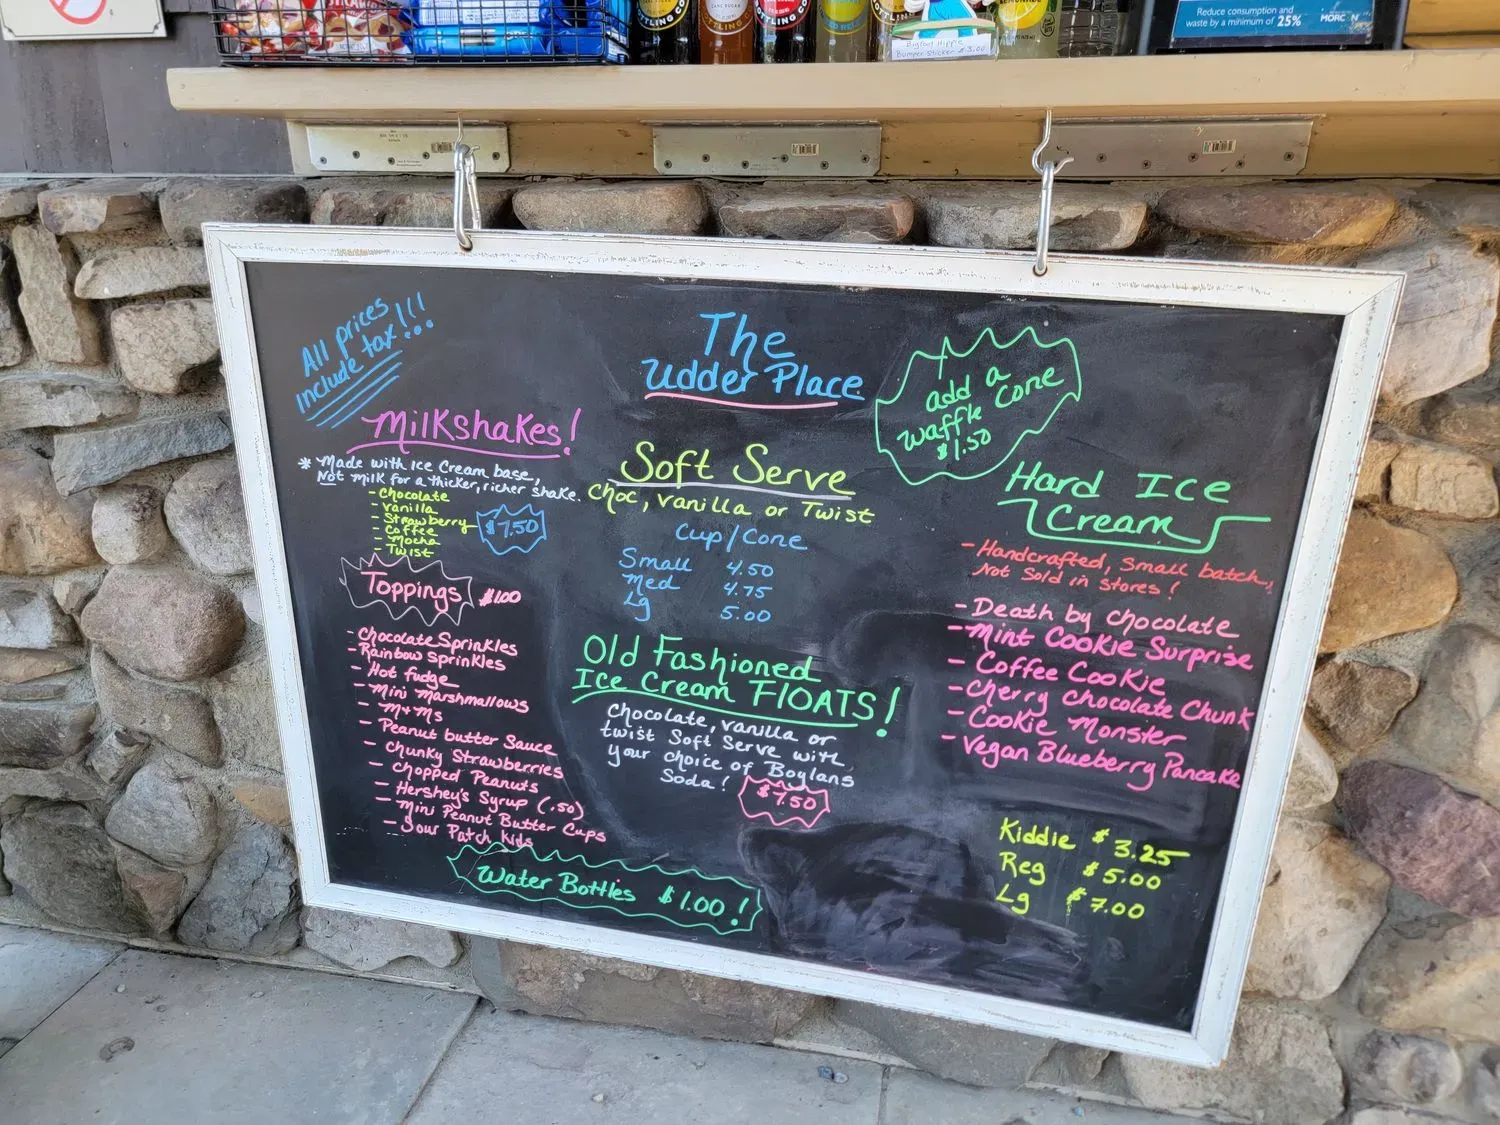 Reduce consumption and
waste by a minimum of 25%
Bigfoot Hippie
Bumper Sticker $3.00
All prices
include tax!!!
The
Udder Place
add a
waffle cone
$1.50
Milkshakes!
* Made with Ice Cream base,
Not milk for a thicker, richer shake.
- Chocolate
- Vanilla
- Strawberry
- Coffee
- Mocha
- Twist
$7.50
Toppings $1.00
- Chocolate Sprinkles
- Rainbow Sprinkles
- Hot fudge
- Mini Marshmallows
- M+Ms
- Peanut butter Sauce
- Chunky Strawberries
- Chopped Peanuts
- Hershey's Syrup (.50)
- Mini Peanut Butter Cups
- Sour Patch Kids
Water Bottles $1.00!
Soft Serve
Choc, Vanilla or Twist
Cup/Cone
Small 4.50
Med 4.75
Lg 5.00
Old Fashioned
Ice Cream FLOATS!
Chocolate, vanilla or
twist Soft Serve with
your choice of Boylans
Soda!
$7.50
Hard Ice
Cream
- Handcrafted, Small batch,
Not Sold in Stores!
- Death by Chocolate
- Mint Cookie Surprise
- Coffee Cookie
- Cherry Chocolate Chunk
- Cookie Monster
- Vegan Blueberry Pancake
Kiddie $3.25
Reg $5.00
Lg $7.00